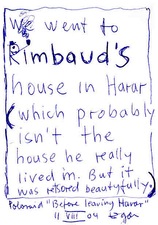 We went to
Rimbaud's
house in Harar
(which probably
isn't the
house he really
lived in. But it
was restored beautyfully.)
Polaroid "Before leaving Harar"
11 VIII 04